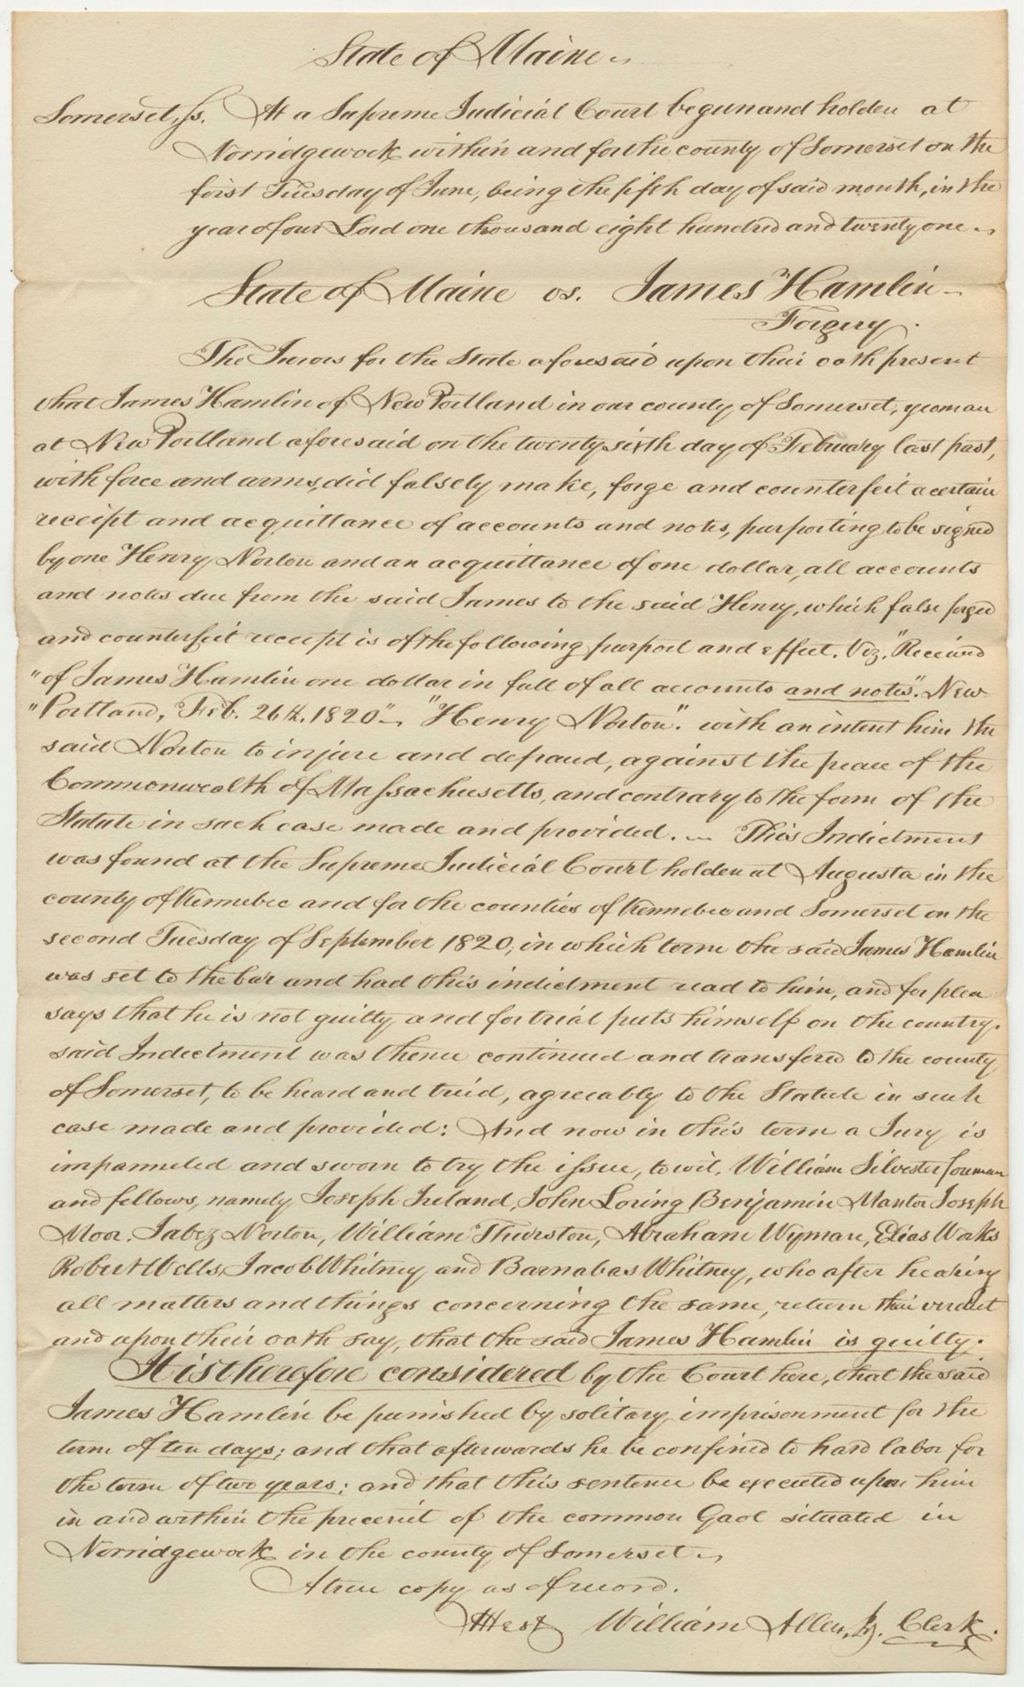 State of Maine
Somerset, ss. At a Supreme Judicial Court begun and holden at
Norridgewock within and for the county of Somerset on the
first Tuesday of June, being the fifth day of said month, in the
year of our Lord one thousand eight hundred and twenty one
State of Maine vs. James Hamlin
Forgery.
The Jurors for the State aforesaid upon their oath present
that James Hamlin of New Portland in our county of Somerset, yeoman
at New Portland aforesaid on the twenty sixth day of February last past,
with force and arms, did falsely make, forge and counterfeit a certain
receipt and acquittance of accounts and notes, purporting to be signed
by one Henry Norton and an acquittance of one dollar, all accounts
and notes due from the said James to the said Henry, which false forged
and counterfeit receipt is of the following purport and effect. Viz. "Received
"of James Hamlin one dollar in full of all accounts and notes". New
"Portland, Feb. 26th. 1820" "Henry Norton". with an intent him the
said Norton to injure and defraud, against the peace of the
Commonwealth of Massachusetts, and contrary to the form of the
Statute in such case made and provided. This Indictment
was found at the Supreme Judicial Court holden at Augusta in the
county of Kennebec and for the counties of Kennebec and Somerset on the
second Tuesday of September 1820, in which term the said James Hamlin
was set to the bar and had this indictment read to him, and for plea
says that he is not guilty and for trial puts himself on the country.
said Indictment was thence continued and transfered to the county
of Somerset, to be heard and tried, agreeably to the Statute in such
case made and provided: And now in this term a Jury is
impanneled and sworn to try the issue, to wit, William Silvester foreman
and fellows, namely Joseph Ireland, John Loring Benjamin Mantor Joseph
Moor. Jabez Norton, William Thurston, Abraham Wyman, Elias Works
Robert Wells, Jacob Whitney and Barnabas Whitney, who after hearing
all matters and things concerning the same, return their verdict
and upon their oath say, that the said James Hamlin is guilty.
It is therefore considered by the Court here, that the said
James Hamlin be punished by solitary imprisonment for the
term of ten days; and that afterwards he be confined to hard labor for
the term of two years; and that this sentence be executed upon him
in and within the precinct of the common Gaol situated in
Norridgewock in the county of Somerset
A true copy as of record.
Attest William Allen, Jr. Clerk.